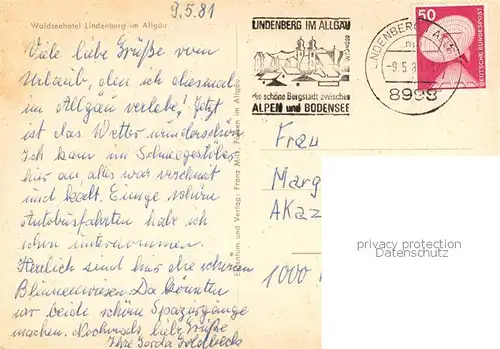 9.5.81
Waldseehotel Lindenberg im Allgäu
Viele liebe Grüße vom
Urlaub, den ich diesmal
im Allgäu verlebe. Jetzt
ist das Wetter wunderschön.
Ich kam im Schneegestöber
hier an, alles war verschneit
und kalt. Einige schöne
Autobusfahrten habe ich
schon unternommen.
Herrlich sind hier die schönen
Blumenwiesen. Da könnten
wir beide schöne Spaziergänge
machen. Nochmals liebe Grüße
Ihre Gerda
Franz Milz, Füssen im Allgäu
LINDENBERG IM ALLGÄU
die schöne Bergstadt zwischen
ALPEN und BODENSEE
LINDENBERG
-9.5.81
8998
50
DEUTSCHE BUNDESPOST
Frau
Marg
AKaz
1000
privacy protection
Datenschutz